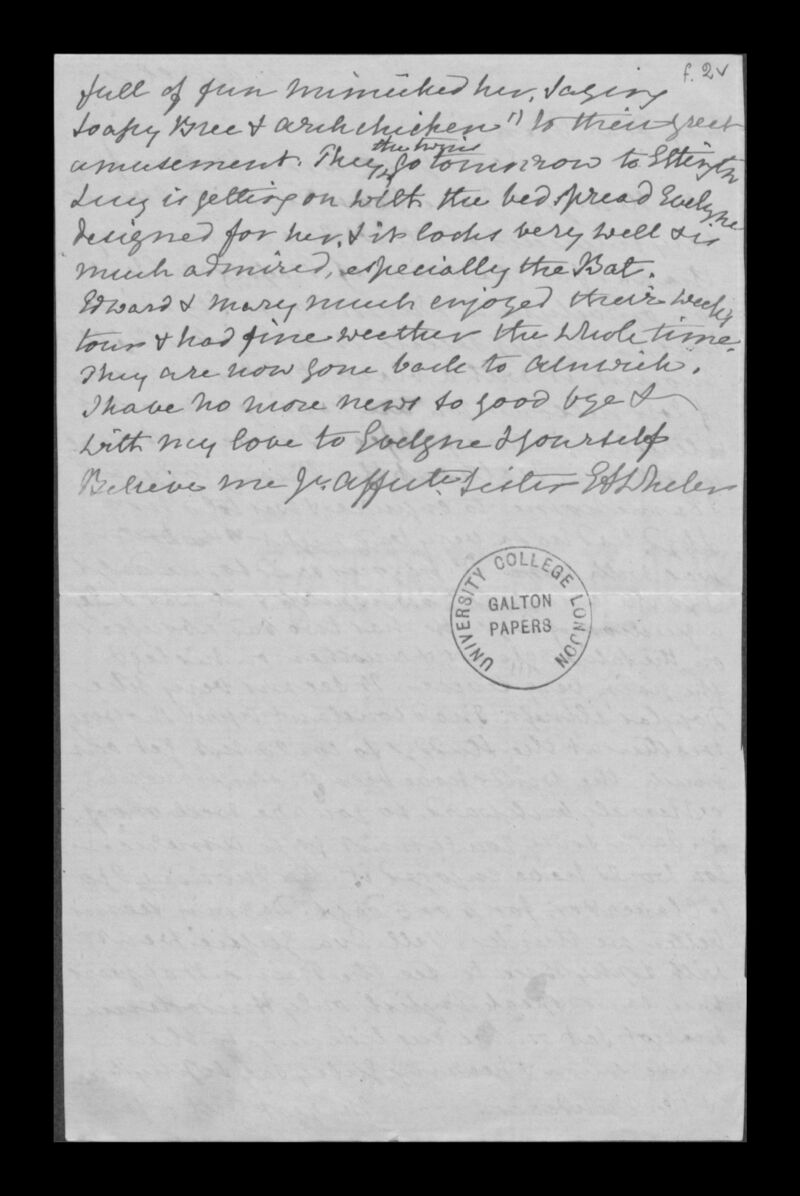 f. 2v
full of fun mimicked her, saying
Soapy Bree & archchicken" to their great
amusement. They, the twins go tomorrow to Ettington
Lucy is getting on with the bed spread Evelyne
designed for her, & it looks very well & is
much admired, especially the Bat.
Edward & Mary much enjoyed their weeks
tour & had fine weather the whole time.
They are now gone back to Alnwick.
I have no more news so good bye &
with my love to Evelyne & yourself
Believe me Yr. affecte. Sister EA Wheler
UNIVERSITY COLLEGE LONDON
GALTON
PAPERS